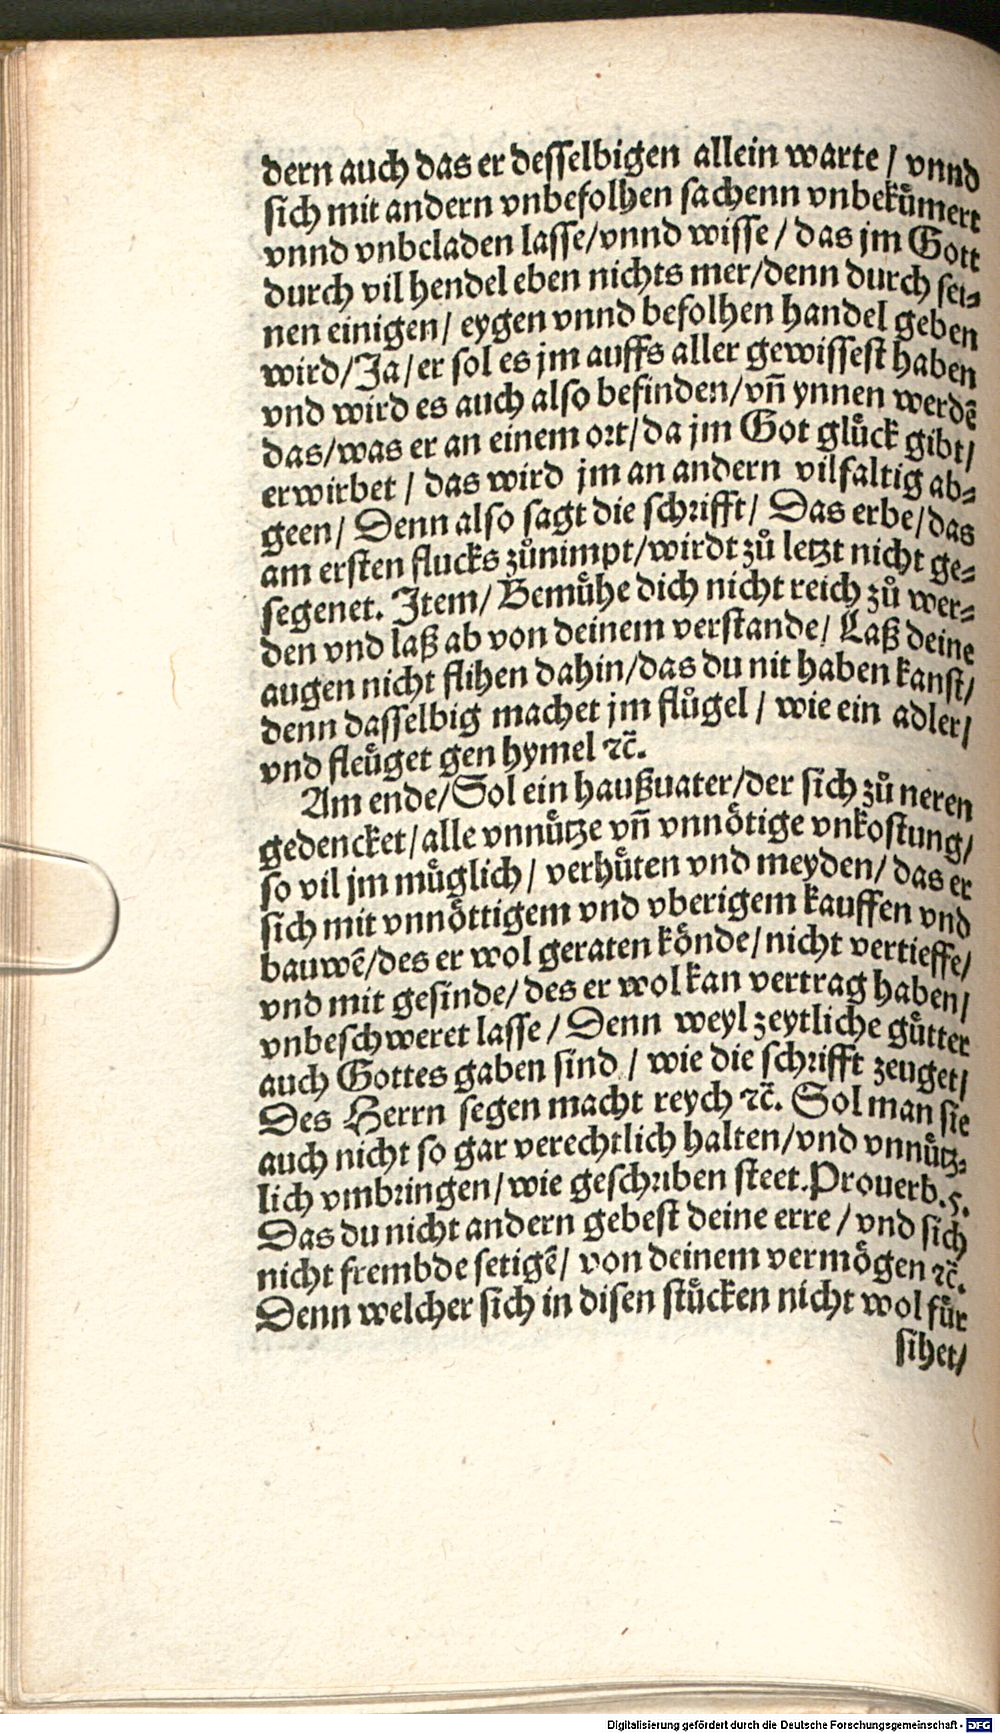 dern auch das er desselbigen allein warte / vnnd
sich mit andern vnbefolhen sachenn vnbekuͤmert
vnnd vnbeladen lasse/vnnd wisse / das jm Gott
durch vil hendel eben nichts mer/denn durch sei⸗
nen einigen/ eygen vnnd befolhen handel geben
wird/Ja/er sol es jm auffs aller gewissest haben
vnd wird es auch also befinden/vñ ynnen werdē
das/was er an einem ort/da jm Got gluͤck gibt/
erwirbet / das wird jm an andern vilfaltig ab⸗
geen/ Denn also sagt die schrifft/ Das erbe/das
am ersten flucks zuͦnimpt/wirdt zuͦ letzt nicht ge⸗
segenet. Item/ Bemuͤhe dich nicht reich zuͦ wer⸗
den vnd laß ab von deinem verstande/ Laß deine
augen nicht flihen dahin/das du nit haben kanst/
denn dasselbig machet jm fluͤgel / wie ein adler/
vnd fleuͤget gen hymel ⁊c̃.
Am ende/Sol ein haußuater/der sich zuͦ neren
gedencket/alle vnnuͤtze vñ vnnoͤtige vnkostung/
so vil jm muͤglich/ verhuͤten vnd meyden/ das er
sich mit vnnoͤttigem vnd vberigem kauffen vnd
bauwē/des er wol geraten koͤnde/nicht vertieffe/
vnd mit gesinde/ des er wol kan vertrag haben/
vnbeschweret lasse / Denn weyl zeytliche guͤtter
auch Gottes gaben sind / wie die schrifft zeuget/
Des Herrn segen macht reych ⁊c̃. Sol man sie
auch nicht so gar verechtlich halten/vnd vnnuͤtz⸗
lich vmbringen/wie geschriben steet.Prouerb.5.
Das du nicht andern gebest deine erre / vnd sich
nicht frembde setigē/ von deinem vermoͤgen ⁊c̃.
Denn welcher sich in disen stuͤcken nicht wol fuͤr
sihet/
Digitalisierung gefördert durch die Deutsche Forschungsgemeinschaft - DFG